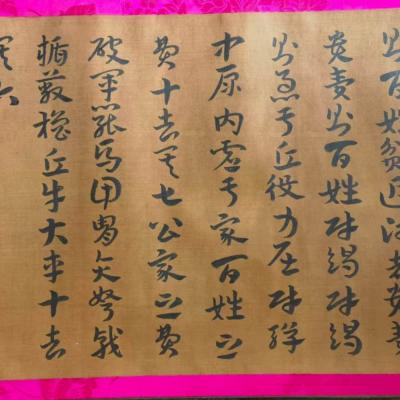 則百姓貧近師者貴賣
貴賣則百姓財竭財竭
則急于丘役力屈財殫
中原內虛于家百姓之
費十去其七公家之費
破軍罷馬甲冑矢弩戟
楯蔽櫓丘牛大車十去
其六